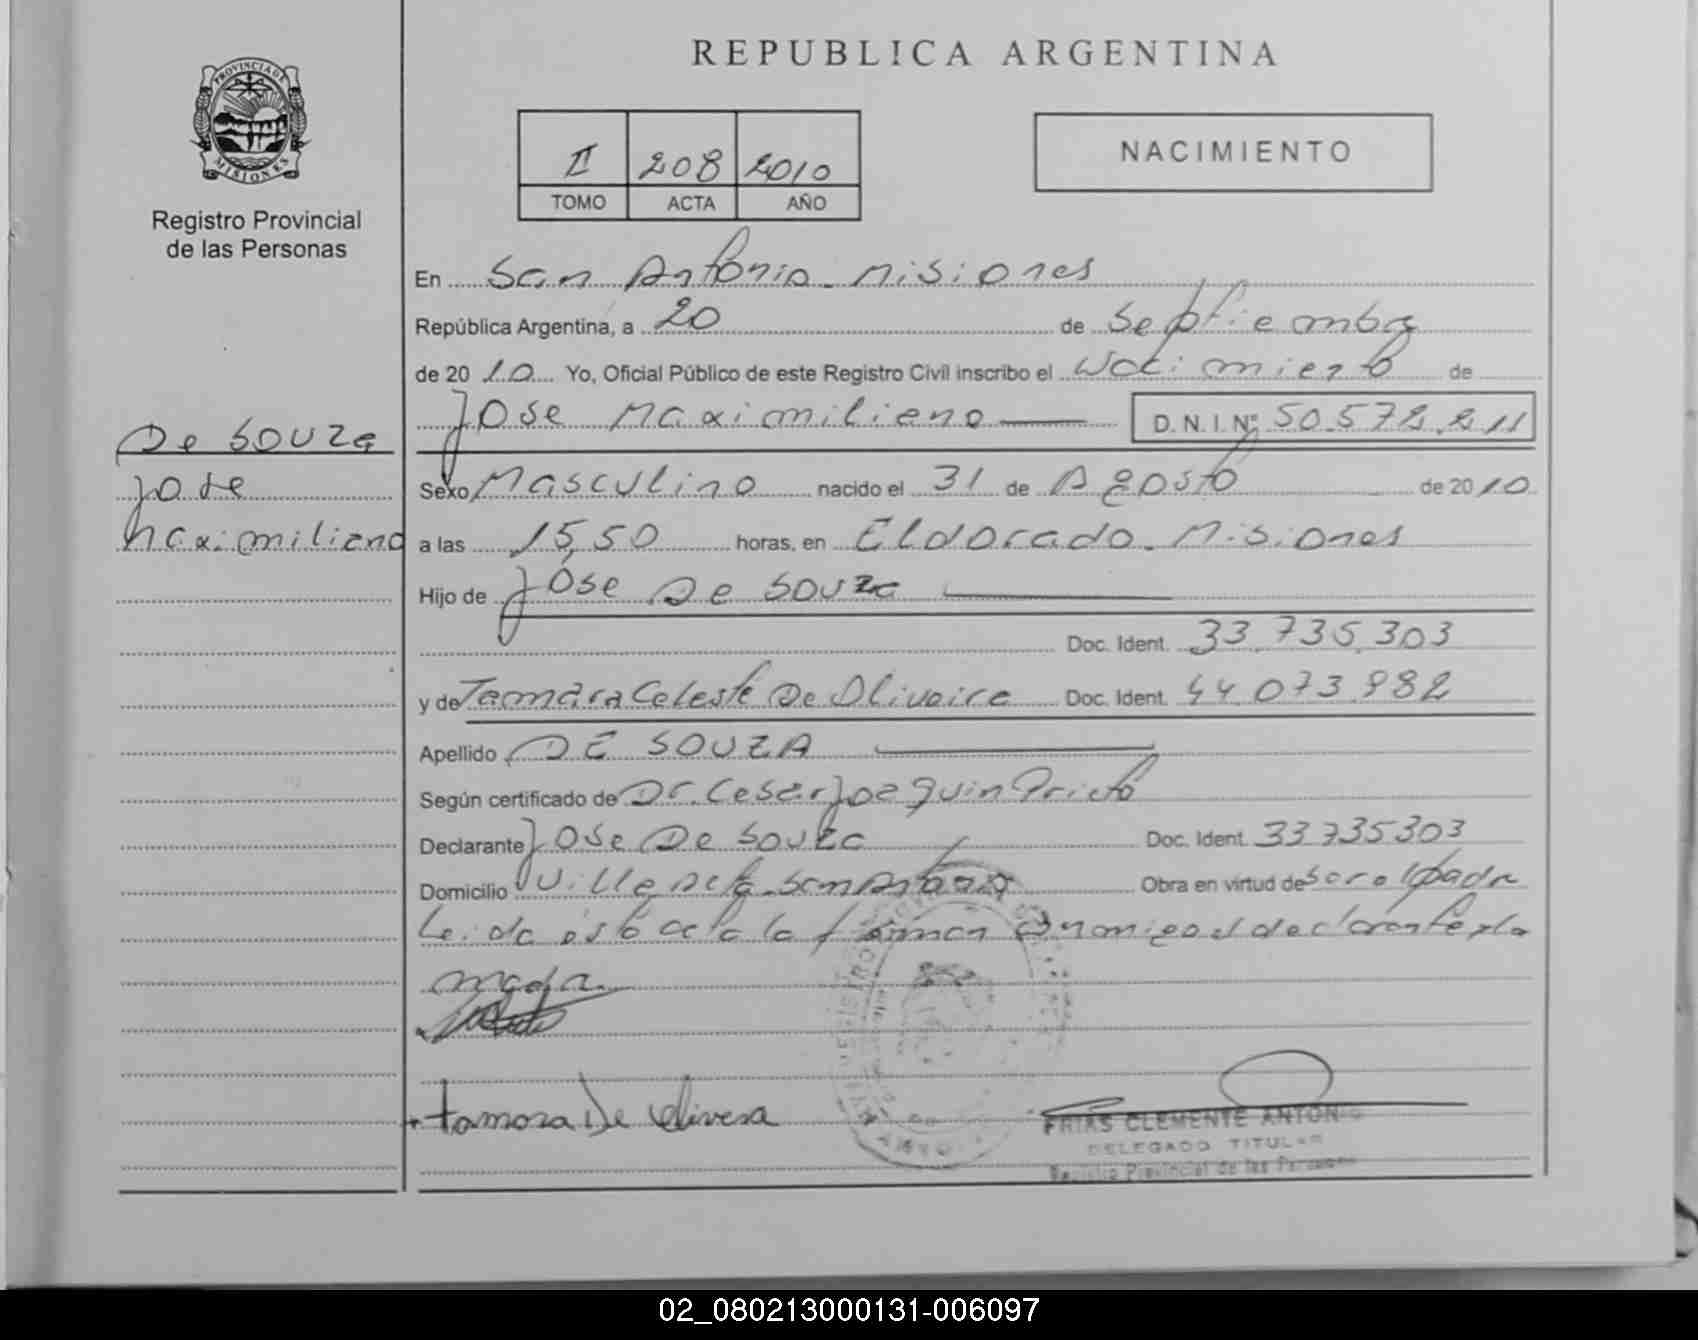 REPUBLICA ARGENTINA
PROVINCIA DE
MISIONES
Registro Provincial
de las Personas
II 208 2010
TOMO ACTA AÑO
NACIMIENTO
En San Antonio - Misiones
República Argentina, a 20 de Septiembre
de 2010 Yo, Oficial Público de este Registro Civil inscribo el Nacimiento de
Jose Maximiliano D.N.I. Nº 50.572.211
De Souza
Jose
Maximiliano
Sexo Masculino nacido el 31 de Agosto de 2010
a las 15,50 horas, en Eldorado - Misiones
Hijo de Jose De Souza
Doc. Ident. 33.735.303
y de Tamara Celeste De Oliveira Doc. Ident. 44.073.982
Apellido DE SOUZA
Según certificado de Dr. Cesar Joaquin Prieto
Declarante Jose De Souza Doc. Ident. 33735303
Domicilio Obra en virtud de
Leida esta acta la firman conmigo el declarante y la
madre
Tamara De Olivera
FRIAS CLEMENTE ANTONIO
DELEGADO TITULAR
Registro Provincial de las Personas
02_080213000131-006097